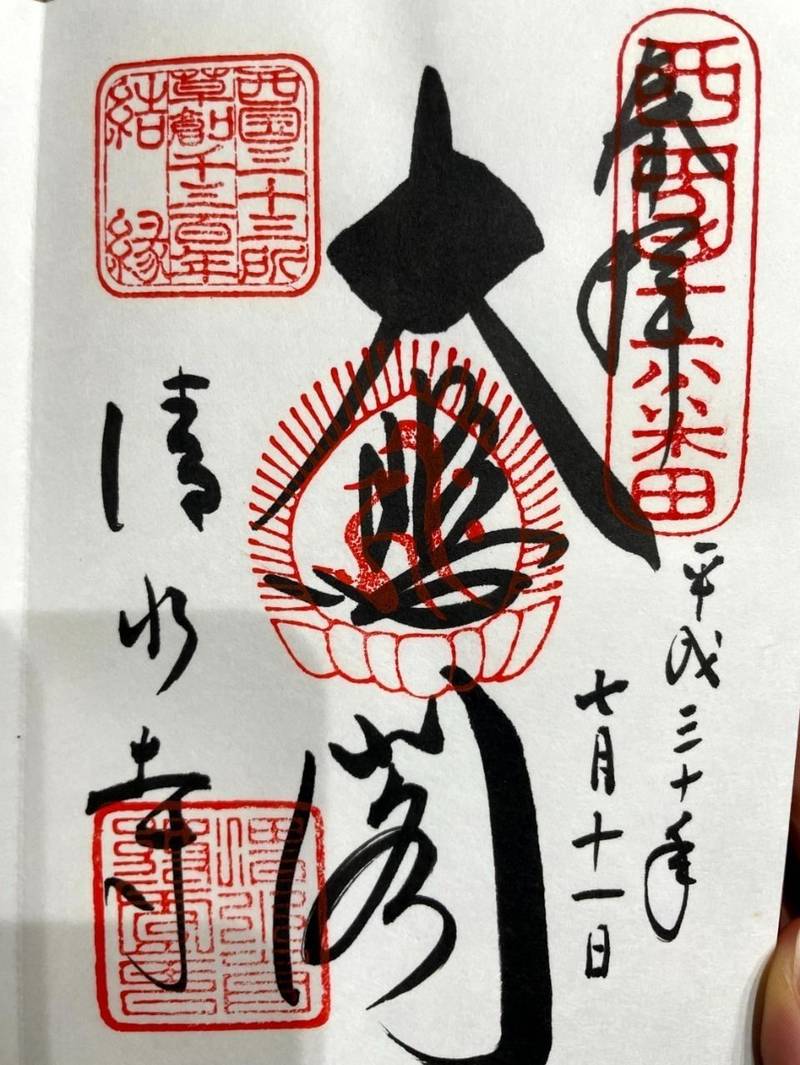 西國十六番
奉拝
平成三十年
七月十一日
大悲閣
西国三十三所
草創千三百年
結縁
清水寺